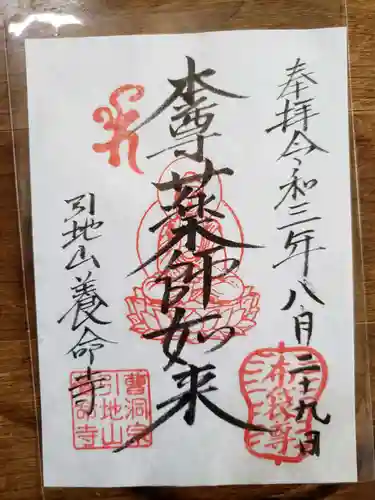 奉拝 令和三年八月二十九日
本尊薬師如来
引地山養命寺
布袋尊
曹洞宗
引地山
養命寺